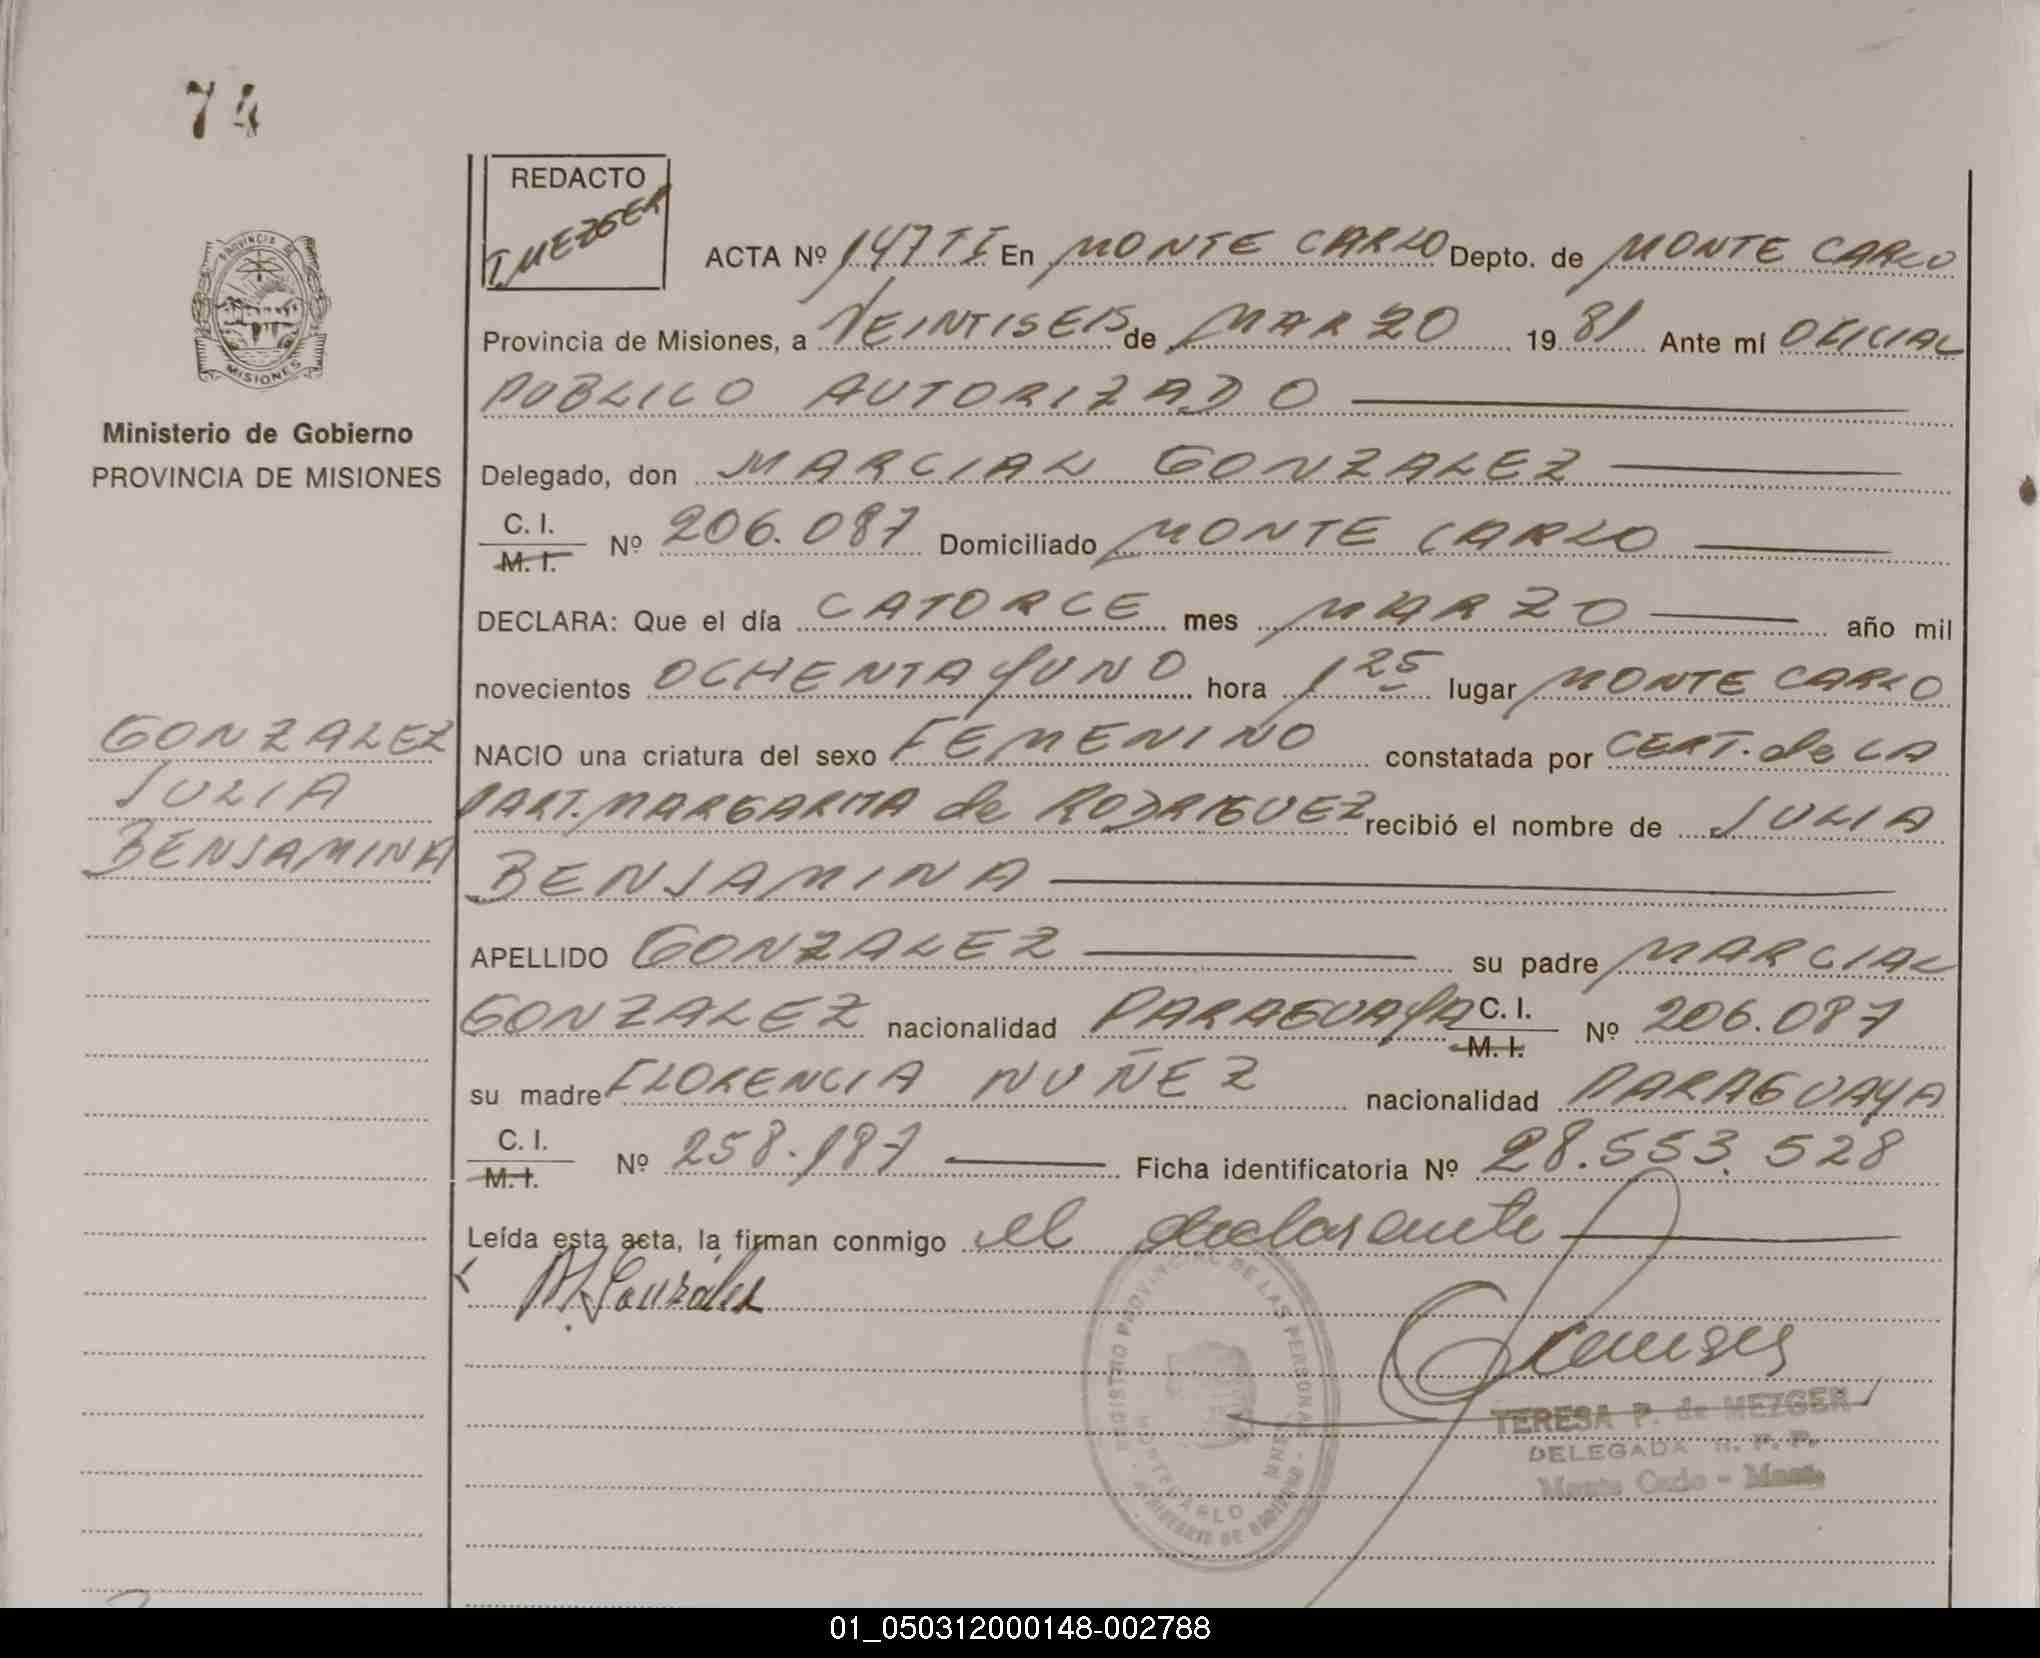 74
REDACTO
T. MEZGER
ACTA Nº 147 TI En MONTE CARLO Depto. de MONTE CARLO
Provincia de Misiones, a VEINTISEIS de MARZO 1981 Ante mí OFICIAL
PUBLICO AUTORIZADO
Delegado, don MARCIAL GONZALEZ
C. I.
M. I. Nº 206.087 Domiciliado MONTE CARLO
DECLARA: Que el día CATORCE mes MARZO año mil
novecientos OCHENTA Y UNO hora 1 25 lugar MONTE CARLO
NACIO una criatura del sexo FEMENINO constatada por CERT. de LA
PART. MARGARITA de RODRIGUEZ recibió el nombre de JULIA
BENJAMINA
APELLIDO GONZALEZ su padre MARCIAL
GONZALEZ nacionalidad PARAGUAYA C. I.
M. I. Nº 206.087
su madre FLORENCIA NUÑEZ nacionalidad PARAGUAYA
C. I.
M. I. Nº 258.187 Ficha identificatoria Nº 28.553.528
Leída esta acta, la firman conmigo el declarante
M. González
PROVINCIA DE
MISIONES
Ministerio de Gobierno
PROVINCIA DE MISIONES
GONZALEZ
JULIA
BENJAMINA
REGISTRO PROVINCIAL DE LAS PERSONAS
MONTECARLO
MINISTERIO DE GOBIERNO
TERESA P. de MEZGER
DELEGADA R. P. P.
Monte Carlo - Mnes
01_050312000148-002788